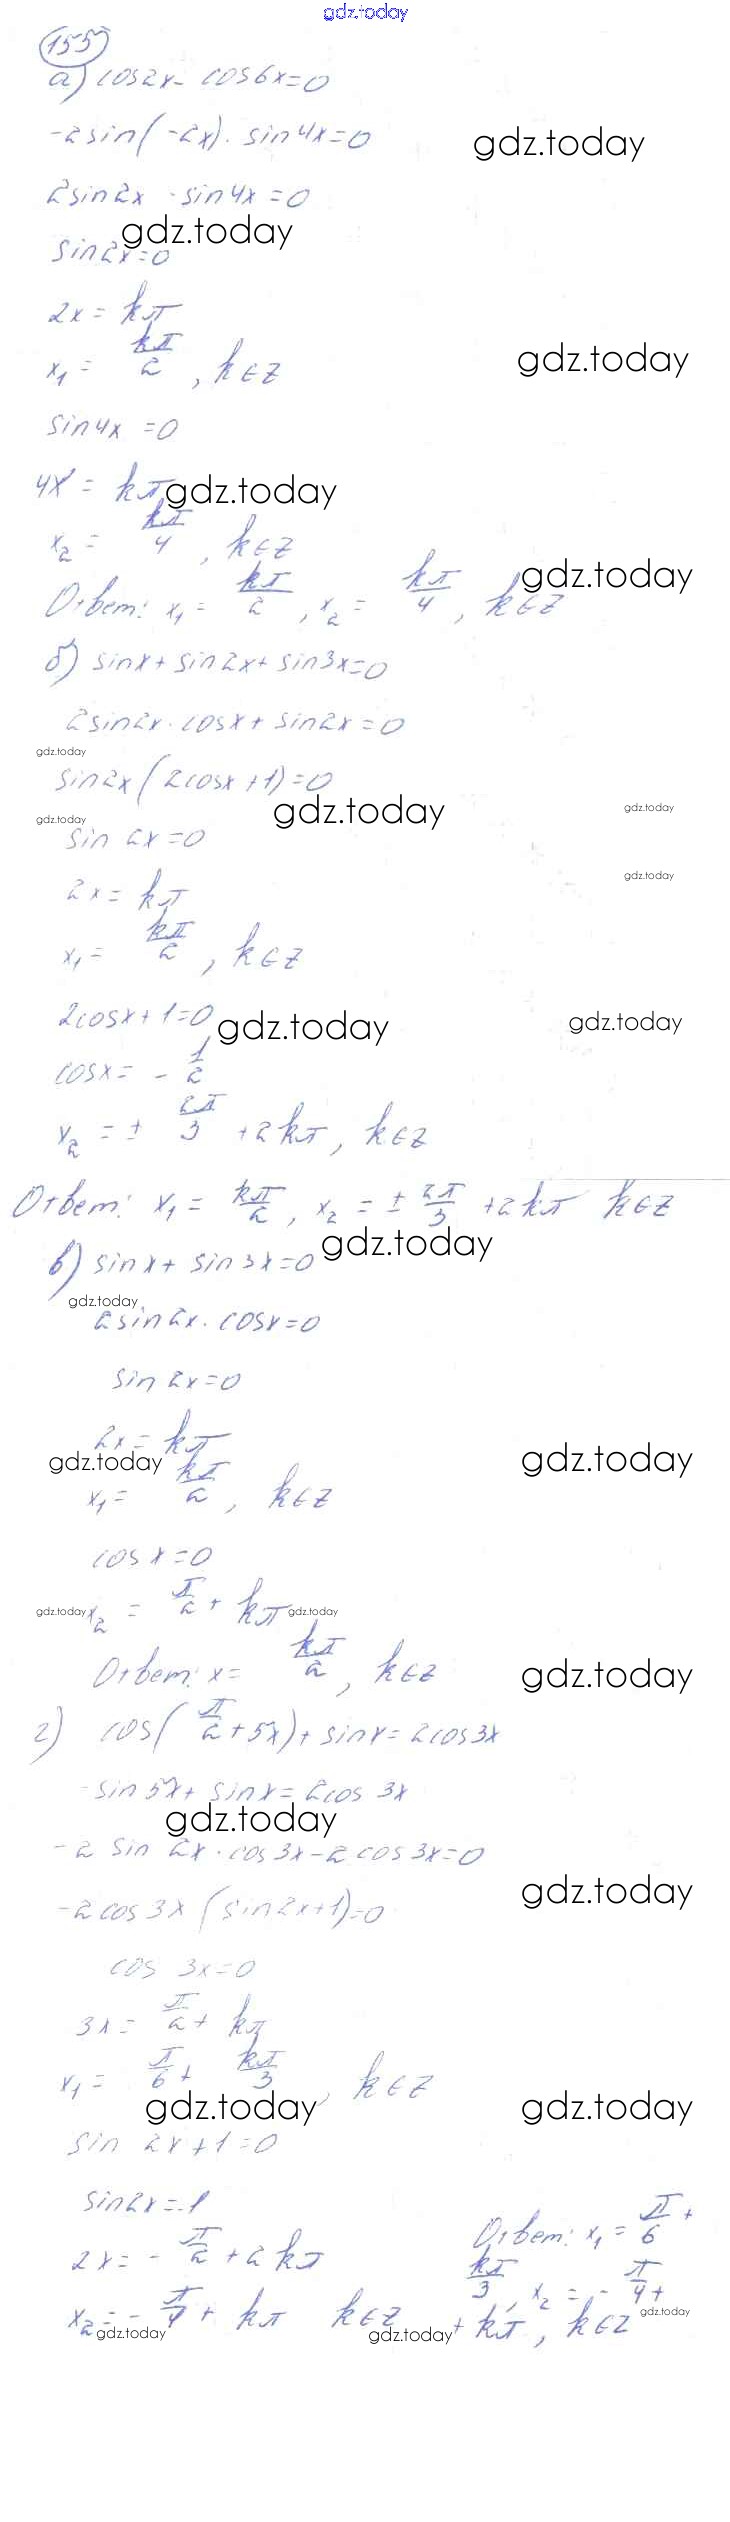 gdz.today
155
а) cos2x - cos6x=0
-2sin(-2x)·sin4x=0
gdz.today
2sin2x·sin4x=0
gdz.today
sin2x=0
2x=kπ
x₁=kπ/2, k∈Z
gdz.today
sin4x=0
4x=kπ
gdz.today
x₂=kπ/4, k∈Z
gdz.today
Ответ: x₁=kπ/2, x₂=kπ/4, k∈Z
б) sinx+sin2x+sin3x=0
2sin2x·cosx+sin2x=0
gdz.today
sin2x(2cosx+1)=0
gdz.today
gdz.today
gdz.today
sin2x=0
gdz.today
2x=kπ
x₁=kπ/2, k∈Z
2cosx+1=0
gdz.today
gdz.today
cosx=-1/2
x₂=±2π/3+2kπ, k∈Z
Ответ: x₁=kπ/2, x₂=±2π/3+2kπ k∈Z
gdz.today
в) sinx+sin3x=0
gdz.today
2sin2x·cosx=0
sin2x=0
2x=kπ
gdz.today
gdz.today
x₁=kπ/2, k∈Z
cosx=0
gdz.today
x₂=π/2+kπ
gdz.today
Ответ: x=kπ/2, k∈Z
gdz.today
г) cos(π/2+5x)+sinx=2cos3x
-sin5x+sinx=2cos3x
gdz.today
-2sin2x·cos3x-2cos3x=0
gdz.today
-2cos3x(sin2x+1)=0
cos3x=0
3x=π/2+kπ
x₁=π/6+kπ/3, k∈Z
gdz.today
gdz.today
sin2x+1=0
sin2x=-1
2x=-π/2+2kπ
x₂=-π/4+kπ k∈Z
gdz.today
Ответ: x₁=π/6+
kπ/3, x₂=-π/4+
gdz.today
+kπ, k∈Z
gdz.today